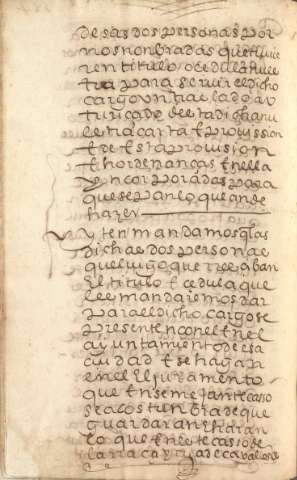 de sas dos personas por
nos nonbradas que tuvie
ren titulo o cedula nues
tra para servir el dicho
cargo un traslado au
turizado desta dicha nu
estra carta e provission
e de esta provision
e hordenanças en ella
yncorporadas para
que sepan lo que an de
hazer
Yten mandamos q las
dichas dos personas
que luego que rresciban
el titulo e cedula que
les mandaremos dar
para el dicho cargo se
presenten con el en el
ayuntamiento de esa
ciudad e se haga
en el el juramento
que en semejante casso
se acostunbra de que
guardaran e haran
lo que en este casso se